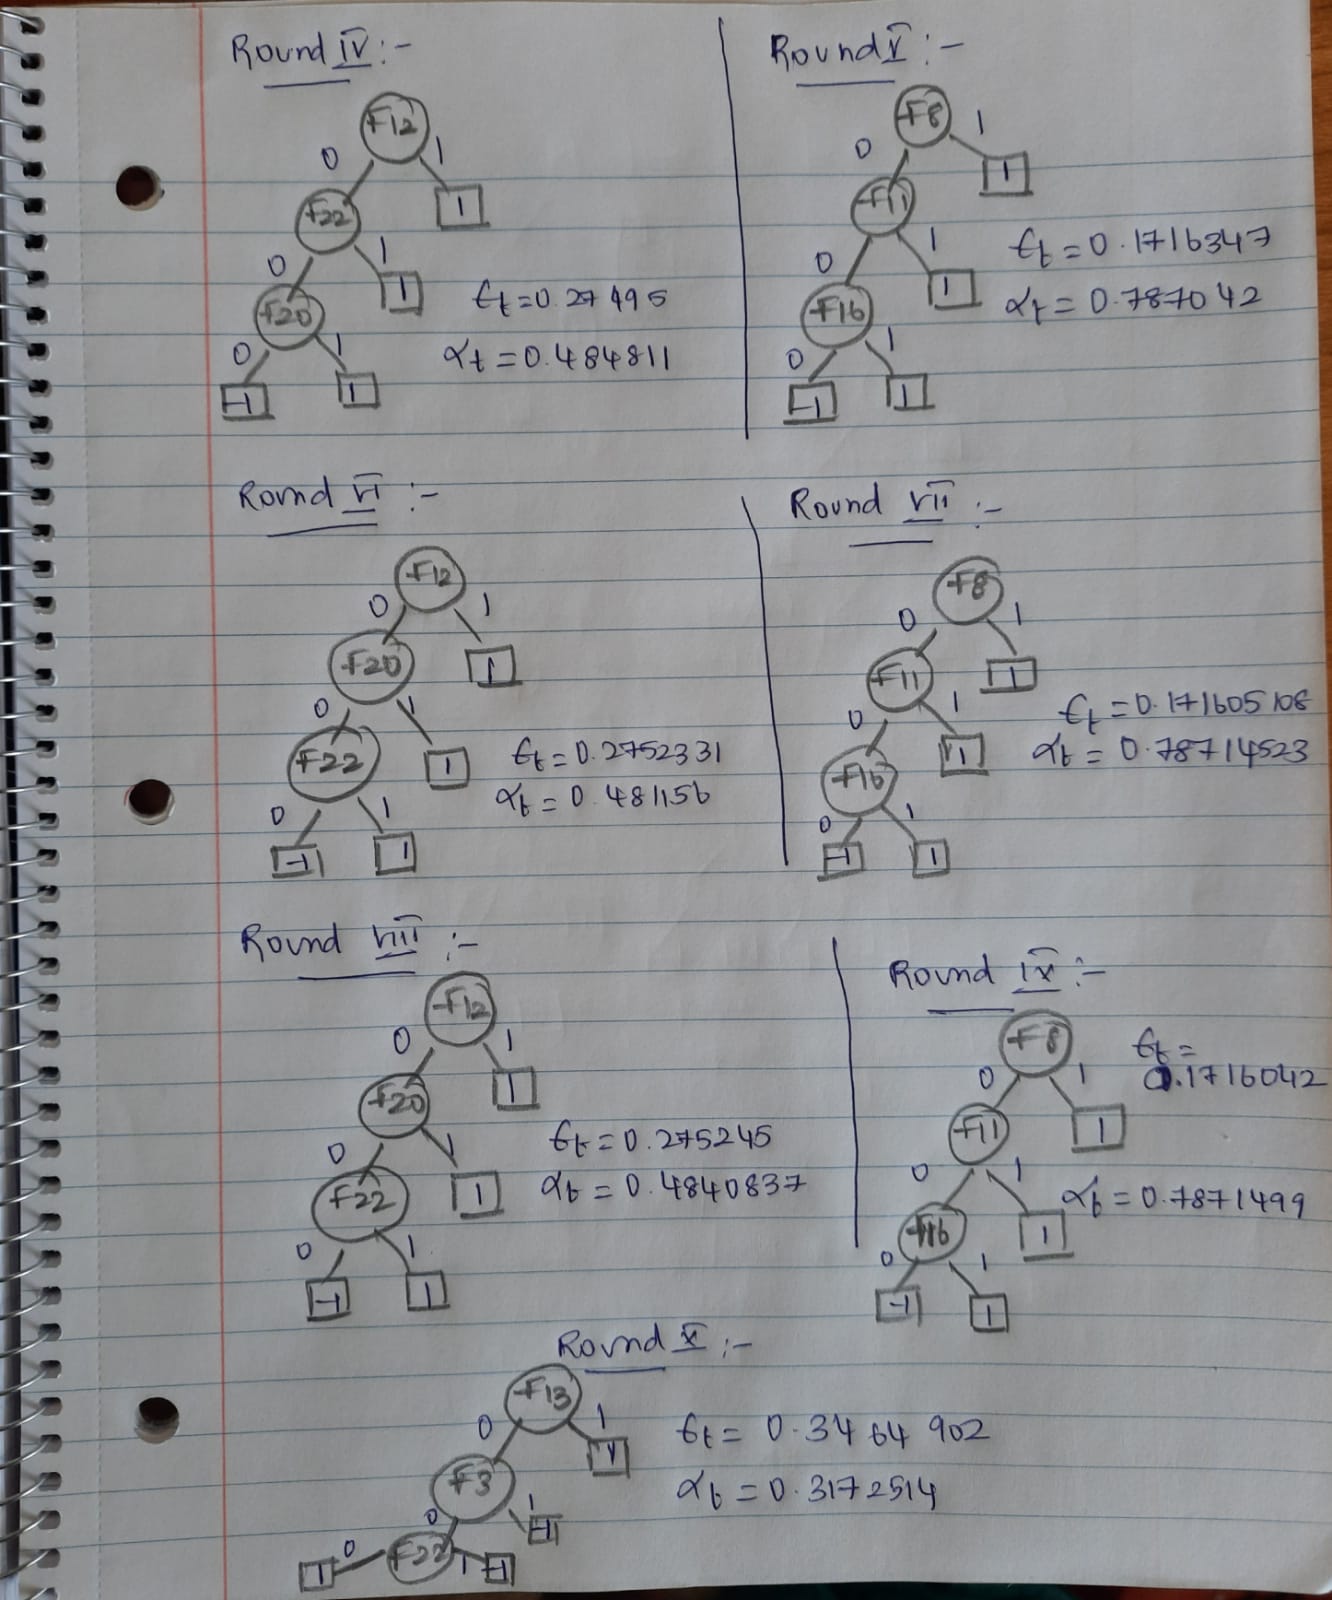 Round IV :-
F12
0 1
F22 1
0 1
F20 1
0 1
-1 1
Et = 0.27495
αt = 0.484811
Round V :-
F8
0 1
F11 1
0 1
F16 1
0 1
-1 1
Et = 0.1716347
αt = 0.787042
Round VI :-
F12
0 1
F20 1
0 1
F22 1
0 1
-1 1
Et = 0.2752331
αt = 0.481156
Round VII :-
F8
0 1
F11 1
0 1
F16 1
0 1
-1 1
Et = 0.171605108
αt = 0.78714523
Round VIII :-
F12
0 1
F20 1
0 1
F22 1
0 1
-1 1
Et = 0.275245
αt = 0.4840837
Round IX :-
F8
0 1
F11 1
0 1
F16 1
0 1
-1 1
Et =
0.1716042
αt = 0.7871499
Round X :-
F13
0 1
F3
0 1
-1
0 F22 1
1
Et = 0.3464902
αt = 0.3172514